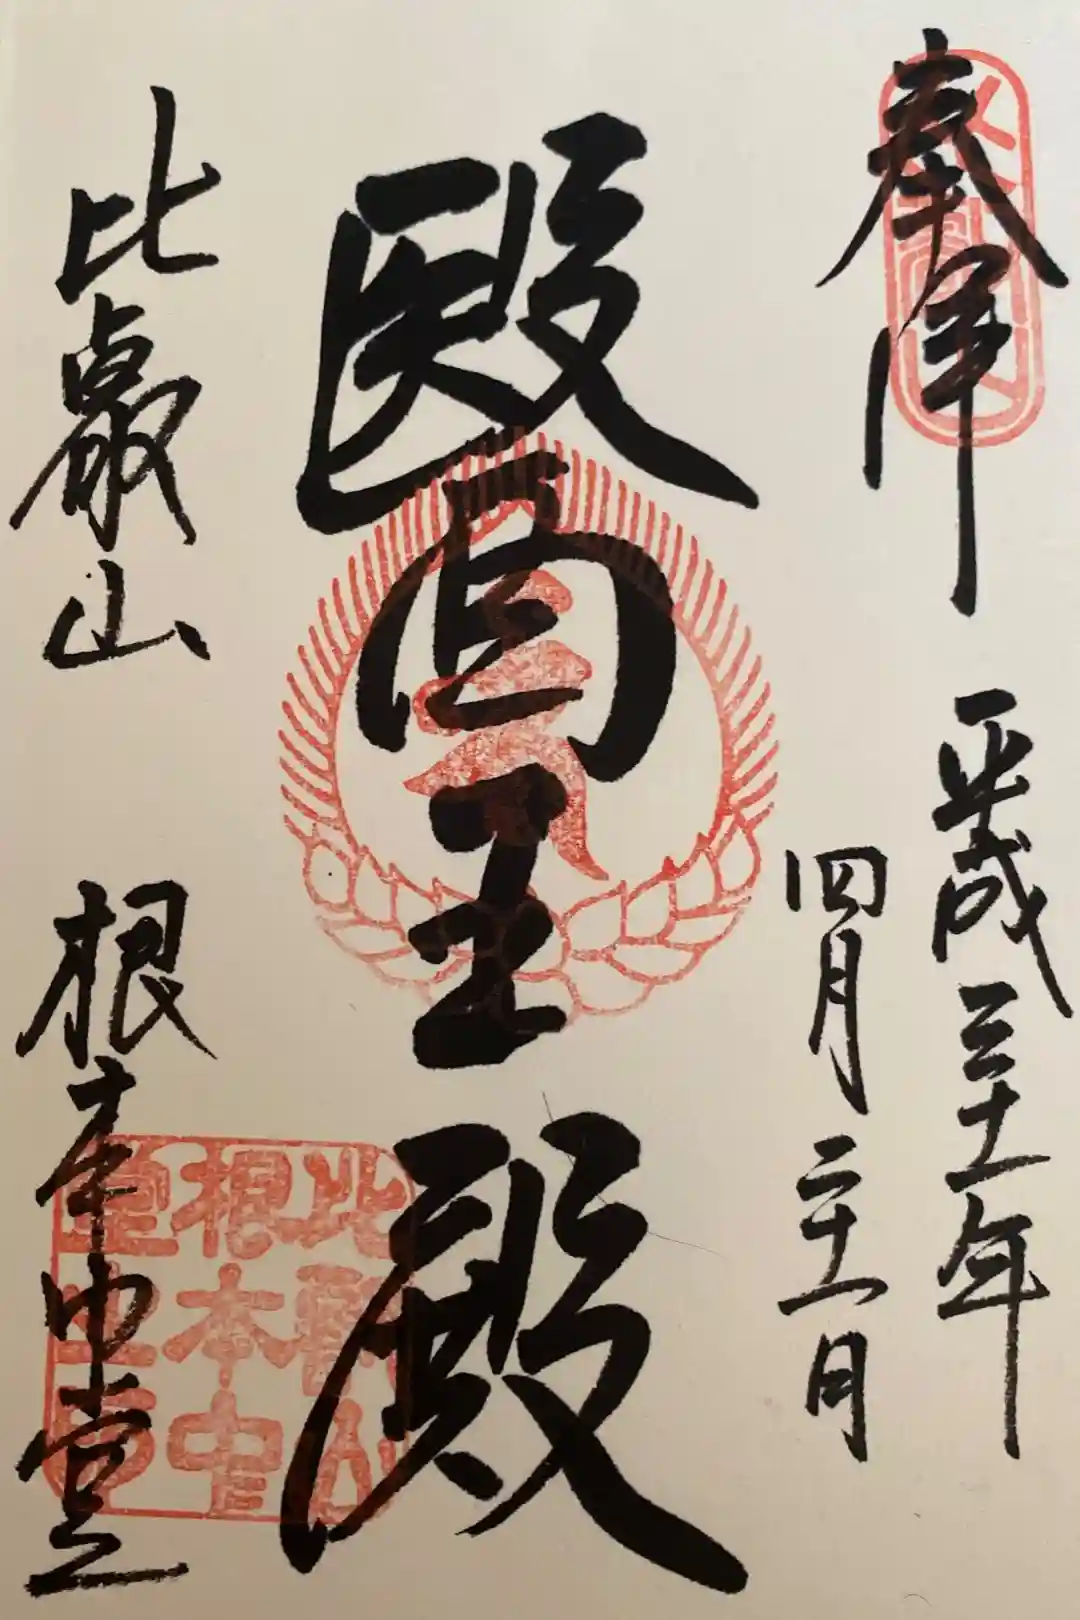 奉拝
平成三十一年
四月二十一日
醫王殿
比叡山 根本中堂
比叡山
根本中
堂之印